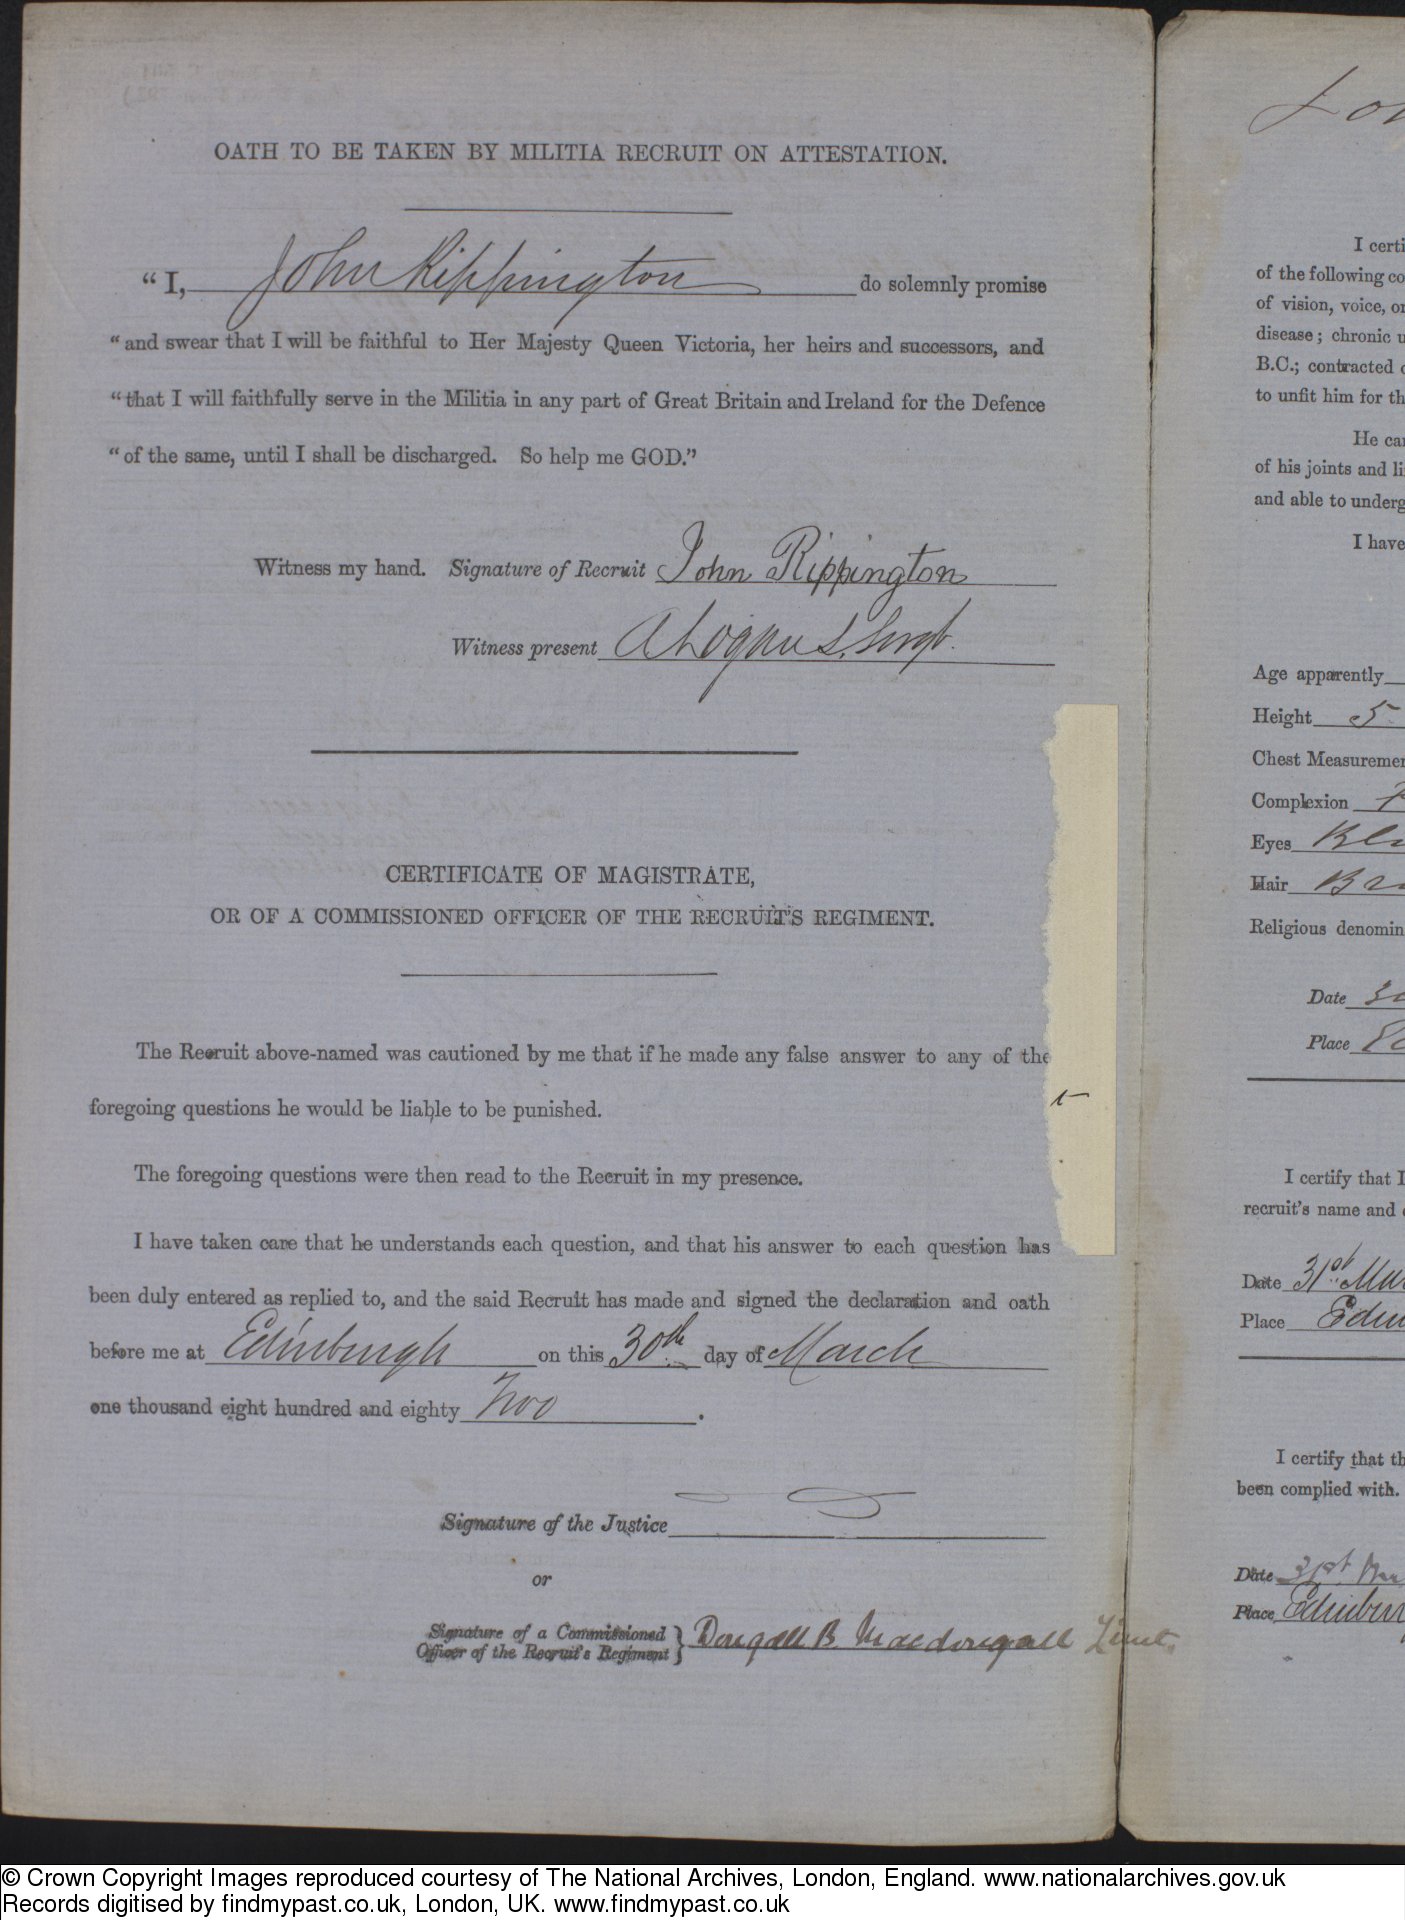 OATH TO BE TAKEN BY MILITIA RECRUIT ON ATTESTATION.
"I, John Rippington do solemnly promise
"and swear that I will be faithful to Her Majesty Queen Victoria, her heirs and successors, and
"that I will faithfully serve in the Militia in any part of Great Britain and Ireland for the Defence
"of the same, until I shall be discharged. So help me GOD."
Witness my hand. Signature of Recruit John Rippington
Witness present A Logan S. Sergt.
CERTIFICATE OF MAGISTRATE,
OR OF A COMMISSIONED OFFICER OF THE RECRUIT'S REGIMENT.
The Recruit above-named was cautioned by me that if he made any false answer to any of the
foregoing questions he would be liable to be punished.
The foregoing questions were then read to the Recruit in my presence.
I have taken care that he understands each question, and that his answer to each question has
been duly entered as replied to, and the said Recruit has made and signed the declaration and oath
before me at Edinburgh on this 30th day of March
one thousand eight hundred and eighty Two.
Signature of the Justice
or
Signature of a Commissioned
Officer of the Recruit's Regiment } Dougall B. Macdougall Lieut.
I certi
of the following co
of vision, voice, or
disease; chronic u
B.C.; contracted
to unfit him for th
He can
of his joints and li
and able to underg
I have
Age apparently
Height 5
Chest Measuremen
Complexion
Eyes Blu
Hair Bro
Religious denomin
Date 30
Place Ed
I certify that I
recruit's name and
Date 31st Mar
Place Edin
I certify that th
been complied with.
Date 31st Mar
Place Edinbur
© Crown Copyright Images reproduced courtesy of The National Archives, London, England. www.nationalarchives.gov.uk
Records digitised by findmypast.co.uk, London, UK. www.findmypast.co.uk